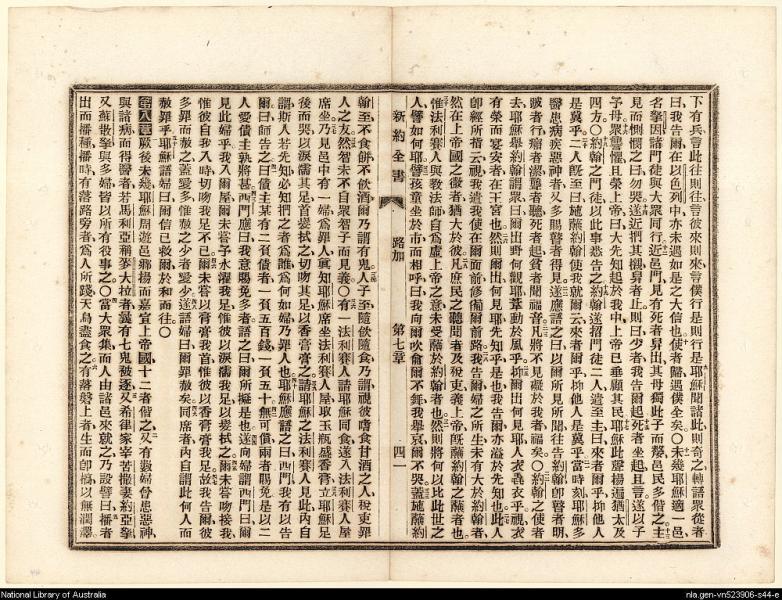 下有兵言此往則往言彼來則來言僕行是則行是耶穌聞諸此則奇之轉語眾從者
曰我告爾在以色列中亦未遇如是之大信也使者歸遇僕全矣〇未幾耶穌適一邑
名拏因諸門徒與大眾同行近邑門見有死者舁出其母獨此子而嫠邑民多偕之主
見而惻憫之曰勿哭遂近捫其櫬舁者止則曰少者我告爾起死者坐起且言遂以子
予母眾讋懼且榮上帝曰大先知起於我中上帝已垂顧其民耶穌此聲揚遍猶太及
四方〇約翰之門徒以此事悉告之約翰遂招門徒二人遣至主曰來者爾乎抑他人
是莫乎二人既至曰施蘸約翰使我就爾云來者爾乎抑他人是莫乎當時刻耶穌多
醫患病疾惡神者又多賜瞽者得見遂應語之曰以爾所見所聞往告約翰即瞽者明
跛者行癩者潔聾者聽死者起貧者聞福音凡將不見礙於我者福矣〇約翰之使者
去耶穌舉約翰謂眾曰爾出野何觀耶葦動於風乎抑爾出何見耶人衣毳衣乎視衣
有榮而宴安者在王宮也然則爾出何見耶先知乎是也我告爾亦溢於先知也此人
即經所揩云視我遣我使在爾面前修備爾前路七我告爾婦之所生未有大於約翰者
然在上帝國之微者猶大於彼凡庶民之聽聞者及稅吏義上帝既蘸約翰之蘸者也
惟法利賽人與教法師自爲虛上帝之意未受蘸於約翰者也然則將何以比此世之
人譬如何耶譬孩童坐於市而相呼曰我向爾吹龠爾不舞我舉哀爾不哭蓋施蘸約
新約全書 路加 第七章 四一
翰至不食餅不飲酒爾乃謂有鬼人子至隨飲隨食乃謂視彼嗜食甘酒之人稅吏罪
人之友然智未不自眾智子而見義〇有一法利賽人請耶穌同食遂入法利賽人屋
席坐乃見邑中有一婦爲罪人眞知耶穌席坐法利賽人屋取玉瓶盛香膏立耶穌足
後而哭以淚濡其足首髮拭之切吻其足以香膏膏之請耶穌之法利賽人見此內自
謂斯人若先知必知捫之者爲誰爲何如婦乃罪人也耶穌應語之曰西門我有以告
爾曰師告之曰債主某有二負債者一負五百錢一負五十無可償兩者賜免是以二
人愛債主孰將甚西門應曰我意賜免多者語之曰爾所擬是也遂向婦謂西門曰爾
見此婦乎我入爾屋爾未曾予水濯我足惟彼以淚濡我足以髮拭之爾未曾吻接我
惟彼自我入時切吻我足不已爾未曾以膏膏我首惟彼以香膏膏我足故我告爾彼
多罪而赦之蓋愛多惟赦之少者愛少遂語婦曰爾罪赦矣同席者內自謂此何人而
赦罪乎耶穌語婦曰爾信已救爾於和而往〇
第八章 厥後未幾耶穌周遊邑鄉揚而嘉宣上帝國十二者偕之又有數婦曾患惡神
與諸病而得醫者若馬利亞稱麥大拉者曩有七鬼被逐又希律家宰苦撒妻約亞拏
又蘇散拏與多婦皆以所有役事之〇當大眾集而人由諸邑來就之乃設譬曰播者
出而播種播時有落路旁者爲人所踐天鳥盡食之有落磐上者生而卽槁以無潤澤
National Library of Australia
nla.gen-vn523906-s44-e